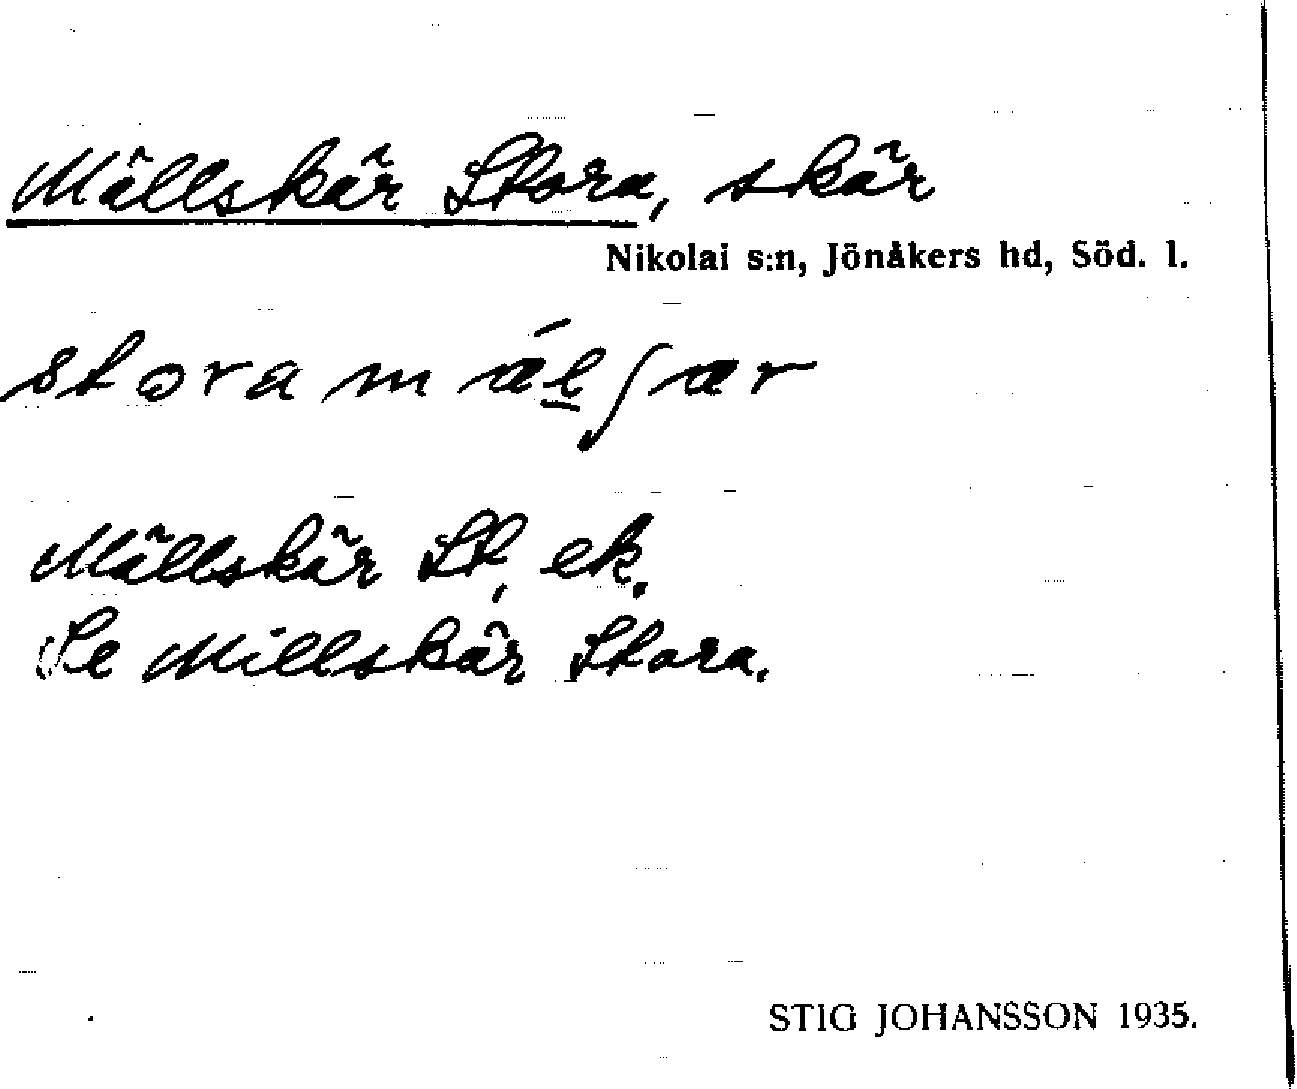 Mällskär Stora, skär
Nikolai s:n, Jönåkers hd, Söd. l.
stora mǽl̲ʃær
Mällskär St, ek.
Se Millskär Stora.
STIG JOHANSSON 1935.